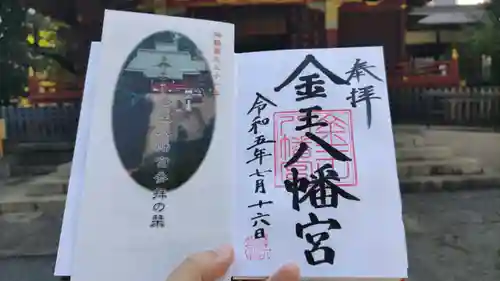 奉拝
金王八幡宮
令和五年七月十六日
金王八幡宮参拝の栞